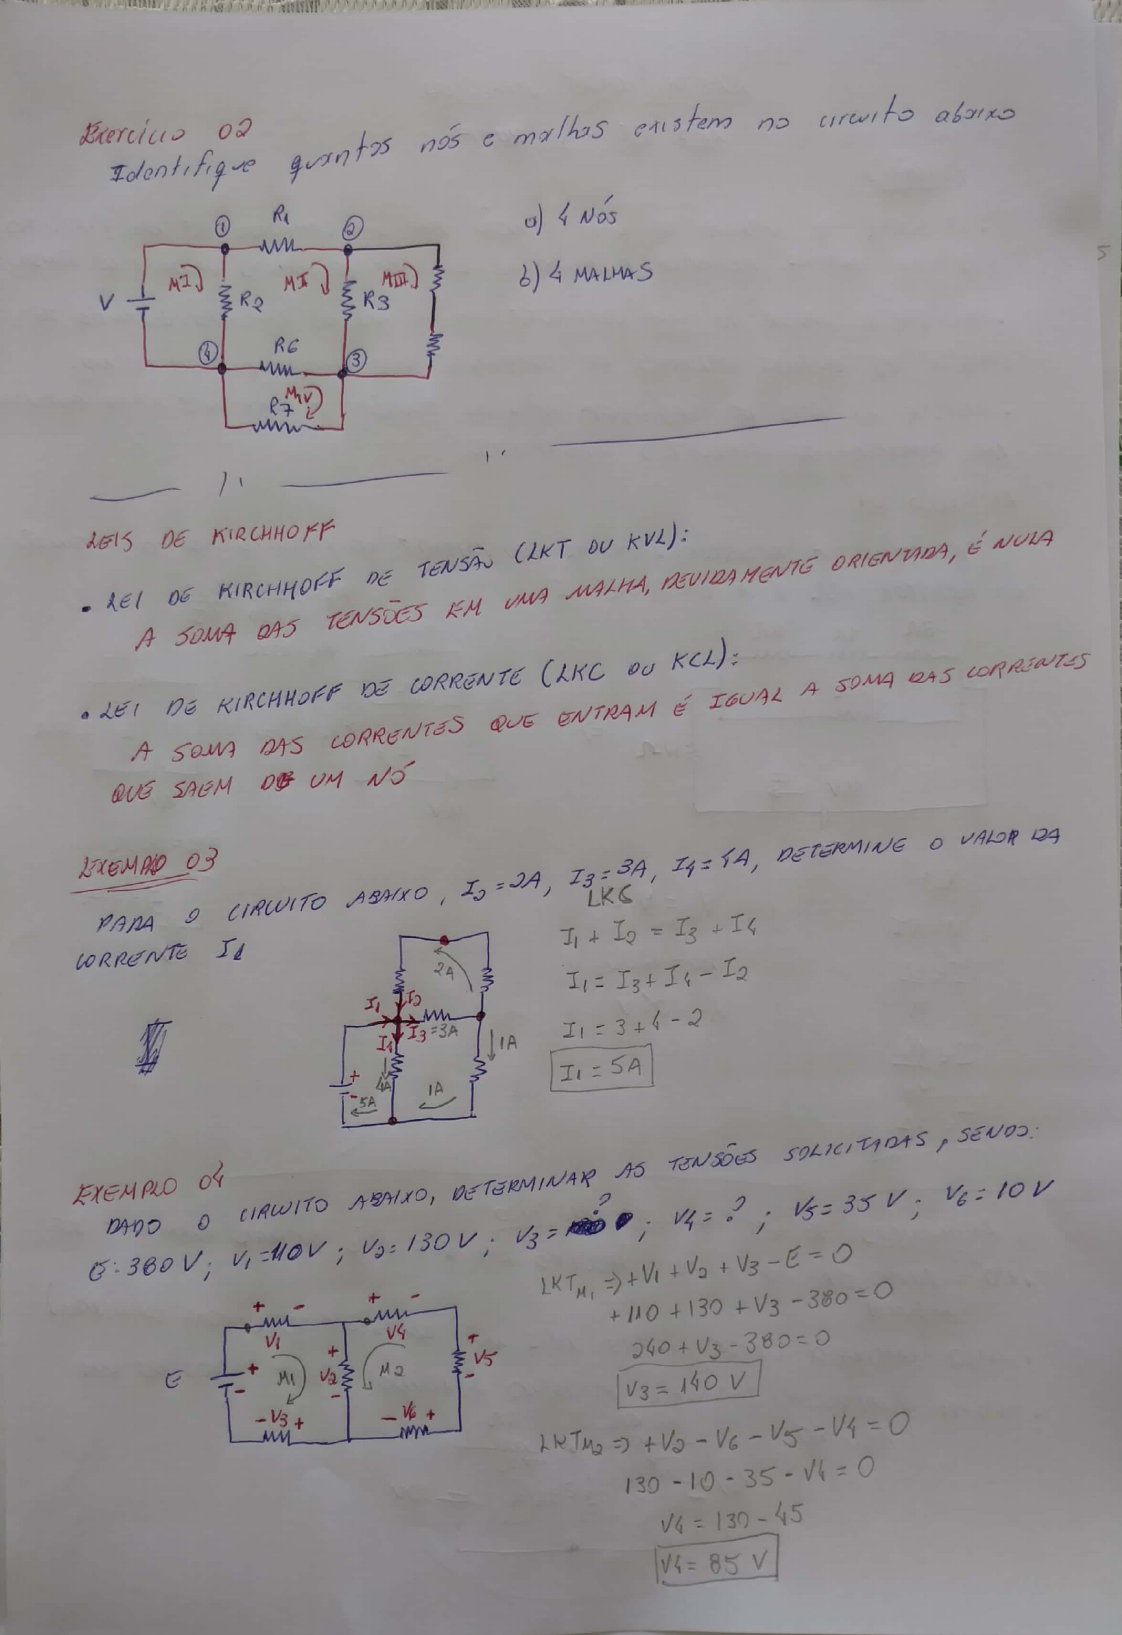 Exercício 02
Identifique quantos nós e malhas existem no circuito abaixo
a) 4 NÓS
b) 4 MALHAS
1 R1 2
MI MII MIII
V R2 R3
4 R6 3
MIV
R7
LEIS DE KIRCHHOFF
• LEI DE KIRCHHOFF DE TENSÃO (LKT OU KVL):
A SOMA DAS TENSÕES EM UMA MALHA, DEVIDAMENTE ORIENTADA, É NULA
• LEI DE KIRCHHOFF DE CORRENTE (LKC OU KCL):
A SOMA DAS CORRENTES QUE ENTRAM É IGUAL A SOMA DAS CORRENTES
QUE SAEM DE UM NÓ
EXEMPLO 03
PARA O CIRCUITO ABAIXO, I2=2A, I3=3A, I4=4A, DETERMINE O VALOR DA
CORRENTE I1
LKC
I1 + I2 = I3 + I4
I1 = I3 + I4 - I2
I1 = 3+4-2
I1 = 5A
2A
I1 I2
I3=3A
I4 1A
+
4A
- 5A 1A
EXEMPLO 04
DADO O CIRCUITO ABAIXO, DETERMINAR AS TENSÕES SOLICITADAS, SENDO:
E=380V; V1=110V; V2=130V; V3=?; V4=?; V5=35V; V6=10V
LKTM1 => +V1+V2+V3-E=0
+110+130+V3-380=0
240+V3-380=0
V3=140 V
LKTM2 => +V2-V6-V5-V4=0
130-10-35-V4=0
V4=130-45
V4=85 V
+ - + -
V1 V4
E + - M1 V2 + - M2 + V5 -
- V3 + - V6 +